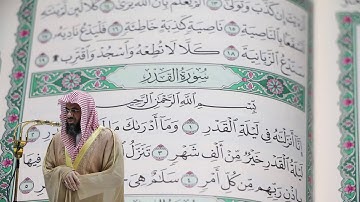 كَذَّبَ وَتَوَلَّىٰ ١٣
لَنَسْفَعًۢا بِٱلنَّاصِيَةِ ١٥ نَاصِيَةٍ كَٰذِبَةٍ خَاطِئَةٍ ١٦ فَلْيَدْعُ نَادِيَهُۥ
سَنَدْعُ ٱلزَّبَانِيَةَ ١٨ كَلَّا لَا تُطِعْهُ وَٱسْجُدْ وَٱقْتَرِب ۩ ١٩
سُورَةُ ٱلْقَدْرِ
بِسْمِ ٱللَّهِ ٱلرَّحْمَٰنِ ٱلرَّحِيمِ
إِنَّآ أَنزَلْنَٰهُ فِى لَيْلَةِ ٱلْقَدْرِ ١ وَمَآ أَدْرَىٰكَ مَا
لَيْلَةُ ٱلْقَدْرِ خَيْرٌ مِّنْ أَلْفِ شَهْرٍ ٣ تَنَزَّلُ فِيهَا
بِإِذْنِ رَبِّهِم مِّن كُلِّ أَمْرٍ ٤ سَلَٰمٌ هِىَ ٥